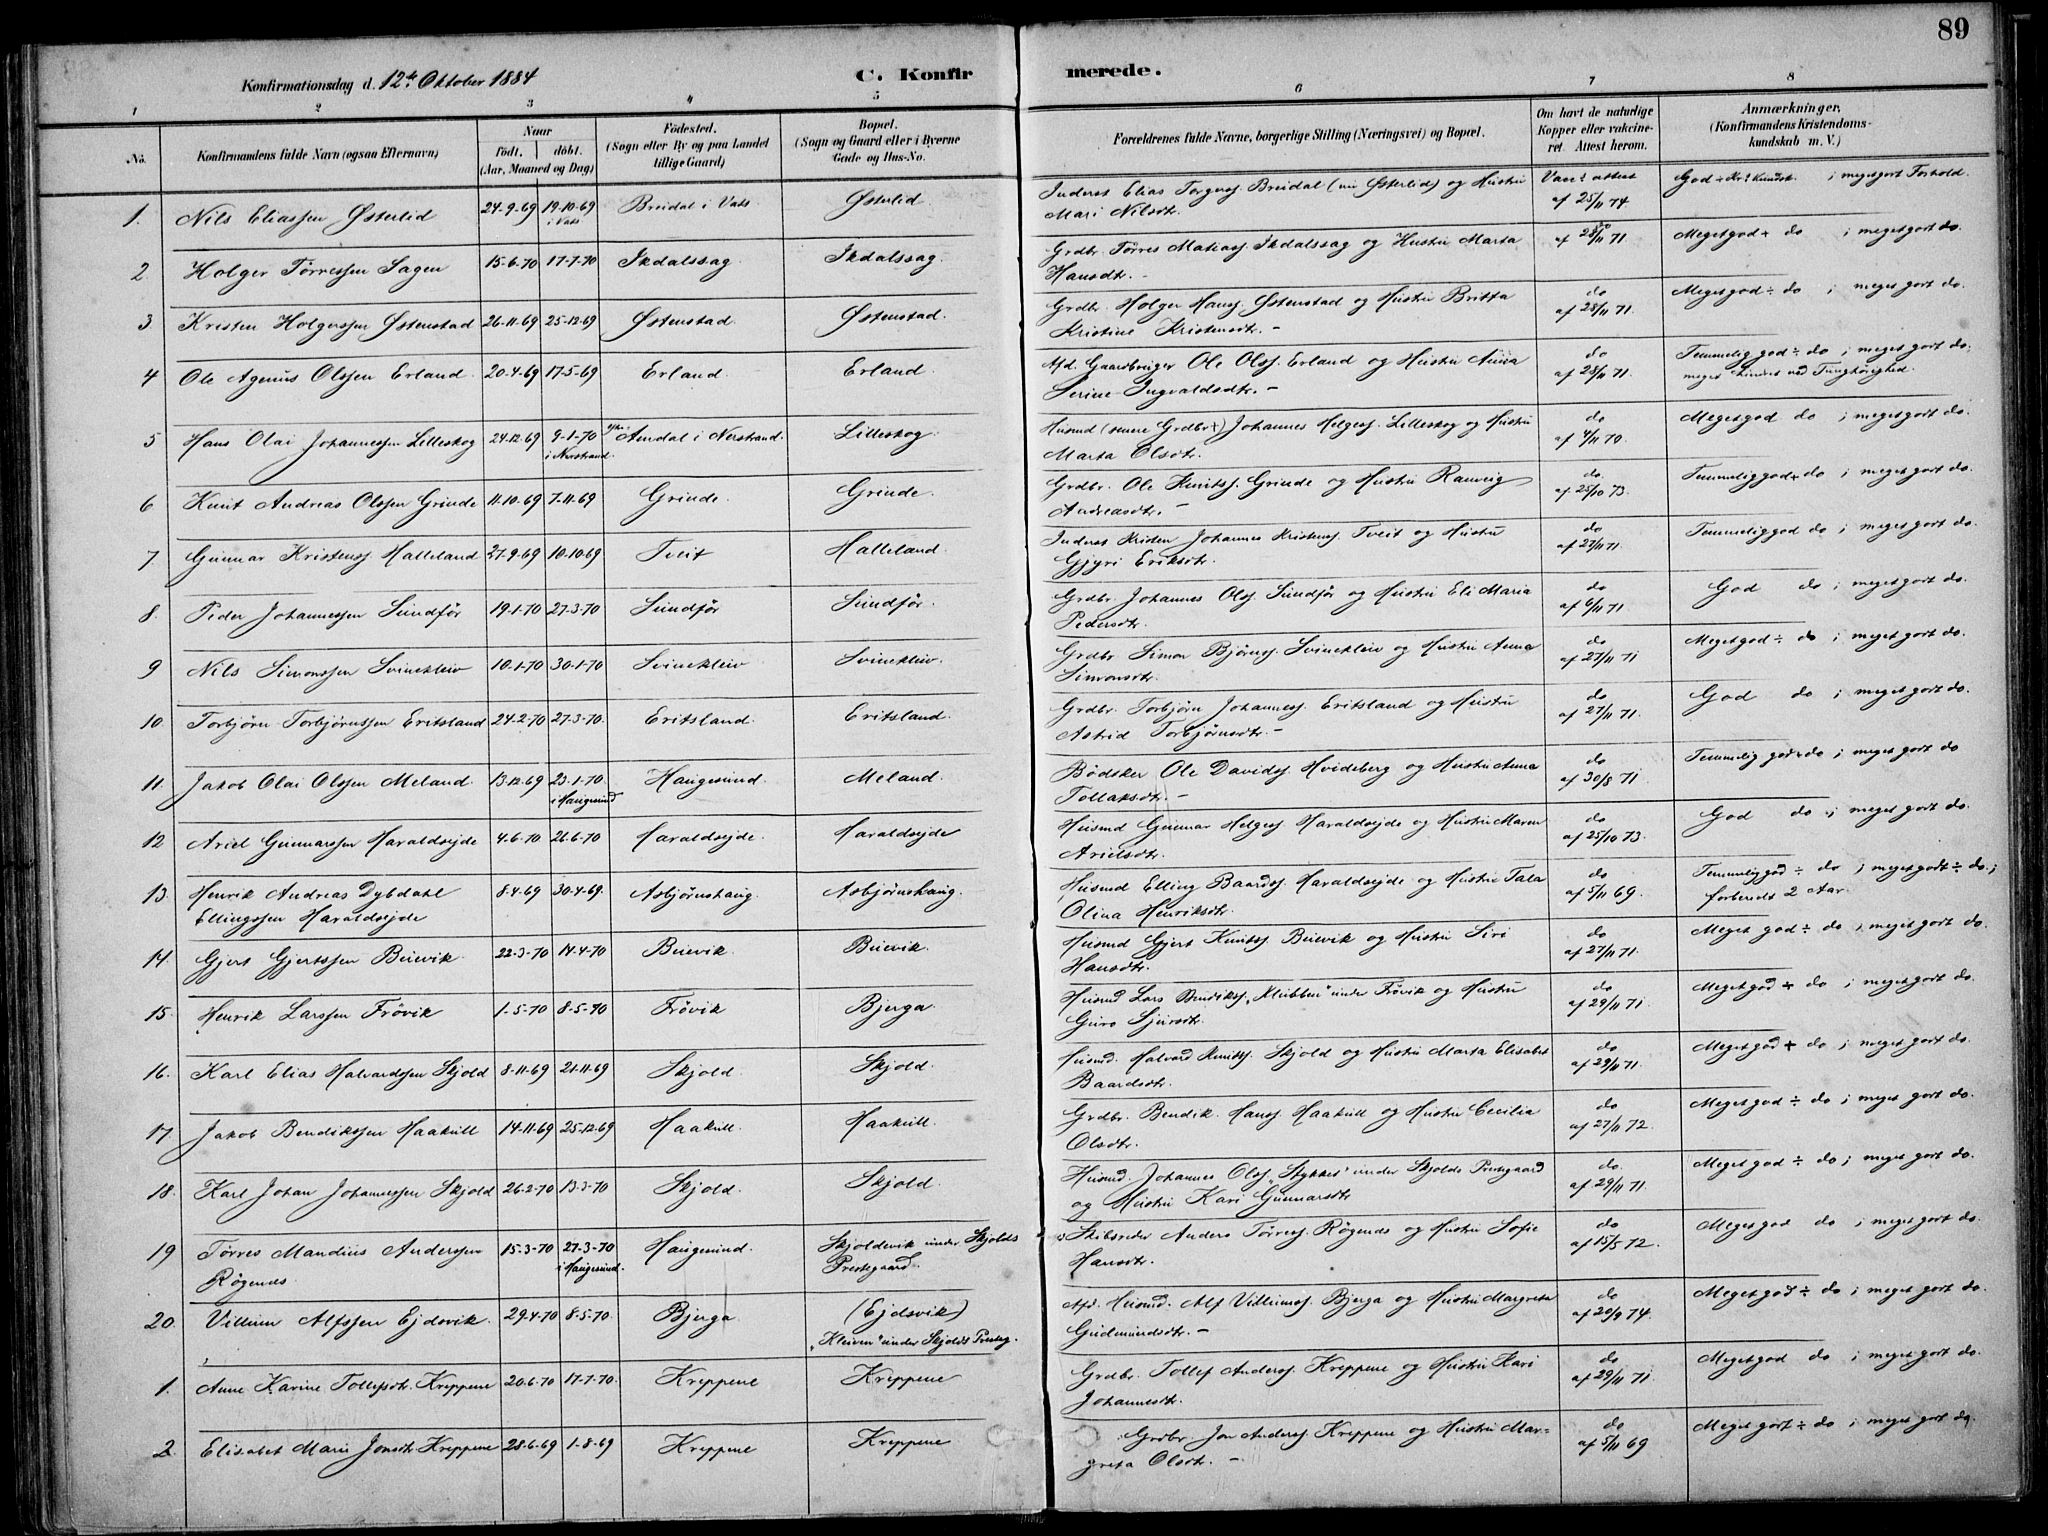 89
Konfirmationsdag d. 12te Oktober 1884 C. Konfirmerede.
1 2 3 4 5 6 7 8
No. Konfirmandens fulde Navn (ogsaa Efternavn) Naar födt. döbt. (Aar, Maaned og Dag) Födested. (Sogn eller By og paa Landet tillige Gaard) Bopæl. (Sogn og Gaard eller i Byerne Gade og Hus-No. Forældrenes fulde Navne, borgerlige Stilling (Næringsvei) og Bopæl. Om havt de naturlige Kopper eller vakcineret. Attest herom. Anmærkninger, (Konfirmandens Kristendomskundskab m. V.)
1. Nils Eliassen Østerlid 24-9-69 19-10-69 i Vats Breidal i Vats Østerlid. Inderst Elias Torgerss. Breidal (nu Østerlid) og Hustru Mari Nilsdtr. Vacc. attest af 25/11 74. God + Kr. Kundsk. i meget gort Forhold.
2. Holger Tørressen Sagen 15-6-70 17-7-70 Ikdalssag Ikdalssag. Grdbr. Tørres Matiass. Ikdalssag og Hustru Marta Hansdtr. - do af 28/11 71. Meget god + do i meget gort do.
3. Kristen Holgerssen Østenstad 26-11-69 25-12-69 Østenstad. Østenstad. Grdbr. Holger Hanss. Østenstad og Hustru Britta Kristine Kristensdtr. - do af 28/11 71. Meget god ÷ do i meget gort do.
4 Ole Agenus Olssen Erland. 20-4-69 17-5-69 Erland. Erland. Afd. Gaardbruger Ole Olss. Erland og Hustru Anna Serine Ingvaldsdtr. - do af 28/11 71. Temmelig god ÷ do i meget gort do; meget hindret ved Tunghørighed.
5 Hans Olai Johannessen Lilleskog 24-12-69 9-1-70 i Nerstrand. Amdal i Nerstrand. Lilleskog. Husmd (senere Grdbr) Johannes Helgess. Lilleskog og Hustru Marta Olsdtr. do af 4/11 70. Meget god do i meget gort do.
6 Knut Andreas Olssen Grinde 11-10-69 7-11-69 Grinde. Grinde. Grdbr. Ole Knutss. Grinde og Hustru Ranveig Andreasdtr. - do af 25/10 73. Temmelig god + do i meget gort do.
7 Gunnar Kristenss. Halleland. 27-9-69 10-10-69 Tveit Halleland. Inderst Kristen Johannes Kristenss. Tveit og Hustru Gjyri Eriksdtr. do af 27/11 71. Temmelig god do i meget gort do.
8. Peder Johannessen Sundfør 19-1-70 27-3-70 Sundfør Sundfør. Grdbr. Johannes Olss. Sundfør og Hustru Eli Maria Pedersdtr. do af 6/11 71 God do i meget gort do.
9 Nils Simonssen Svinekleiv 10-1-70 30-1-70 Svinekleiv. Svinekleiv. Grdbr. Simon Bjørnss. Svinekleiv og Hustru Anna Simonsdtr. do af 27/11 71 Meget god ÷ do i meget gort do.
10. Torbjørn Torbjørnssen Eritsland 24-2-70 27-3-70. Eritsland. Eritsland. Grdbr. Torbjørn Johanness. Eritsland og Hustru Astrid Torbjørnsdtr. - do af 27/11 71. God do i meget gort do.
11. Jakob Olai Olssen Meland. 13-12-69 23-1-70 i Haugesund Haugesund. Meland. Bødsker Ole Davidss. Hvideberg og Hustru Anna Tollaksdtr. - do af 30/8 71. Temmelig god + do i meget gort do
12 Ariel Gunnarssen Haraldsejde 4-6-70 26-6-70 Haraldsejde. Haraldsejde Husmd Gunnar Helgess. Haraldsejde og Hustru Maren Arielsdtr. do af 25/10 73. God do i meget gort do.
13. Henrik Andreas Dybdahl Ellingssen Haraldsejde 8-4-69 30-4-69. Asbjørnshaug. Asbjørnshaug. Husmd Elling Baardss. Haraldsejde og Hustru Tala Olina Henriksdtr. do af 5/11 69. Temmelig god ÷ do i meget godt ÷ do; forberedt 2 Aar.
14. Gjert Gjertssen Buevik 22-3-70 14-4-70 Buevik. Buevik. Husmd Gjert Knutss. Buevik og Hustru Siri Hansdtr. do af 27/11 71. Meget god ÷ do i meget gort do.
15. Henrik Larssen Frøvik 1-5-70 8-5-70 Frøvik Bjerga. Husmd Lars Bendikss. „Klubben" under Frøvik og Hustru Guro Sjursdtr. do af 29/11 71. Meget god + do i meget gort do.
16. Karl Elias Halvardssen Skjold 8-11-69 21-11-69 Skjold. Skjold. Husmd. Halvard Knutss. Skjold og Hustru Marta Elisabet Baardsdtr. do af 29/11 71. Meget god + do i meget gort do.
17 Jakob Bendikssen Haakull 14-11-69 25-12-69 Haakull. Haakull. Grdbr. Bendik Hanss. Haakull og Hustru Cecilia Olsdtr. do af 27/11 72. Meget god ÷ do i meget gort do.
18. Karl Johan Johannessen Skjold 26-2-70 13-3-70 Skjold. Skjold. Husmd. Johannes Olss. „Stykket" under Skjolds Prestegaard og Hustru Kari Gunnarsdtr do. af 29/11 71. Meget god ÷ do i meget gort do.
19 Tørres Mandius Anderssen Røgenes. 15-3-70 27-3-70 i Haugesund. Haugesund. Skjoldevik under Skjolds Prestegaard. Skibsreder Anders Tørress. Røgenes og Hustru Sofie Hansdtr. do af 15/5 72. Meget god do i meget gort do.
20. Villum Alfssen Ejdsvik. 29-4-70 8-5-70. Bjerga (Ejdsvik) „Kleiven" under Skjolds Presteg. Afd. Husmd. Alf Villumss. Bjerga og Hustru Margreta Gudmundsdtr. - do af 20/9 74. Meget god ÷ do i meget gort do.
1. Anne Karine Tollefsdtr. Kreppene 20-6-70 17-7-70. Kreppene Kreppene Grdbr. Tollef Anderss. Kreppene og Hustru Kari Johannesdtr. do af 29/11 71. Meget god do i meget gort do.
2. Elisabet Marie Jonsdtr Kreppene 28-6-69 1-8-69 Kreppene Kreppene Grdbr. Jon Anderss. Kreppene og Hustru Margreta Olsdtr. - do af 5/11 69 Meget gort ÷ do i meget gort do.